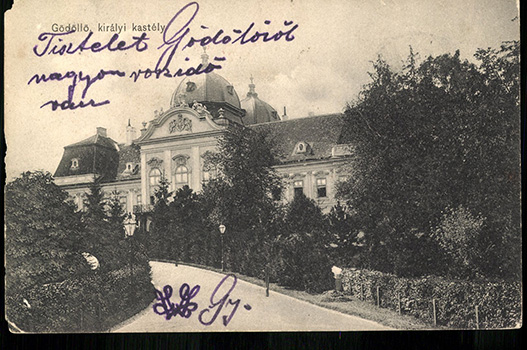 Gödöllő, királyi kastély
Tisztelet Gödölőről
nagyon rosz idő
van
Gy.